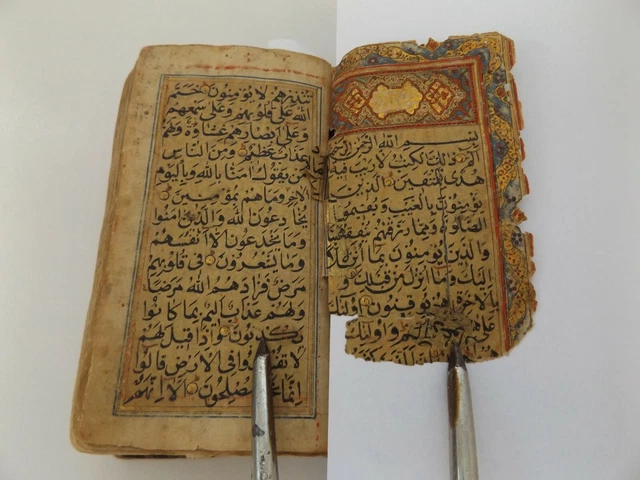 بسم الله الرحمن الرحيم
الم ذلك الكتب لا ريب فيه
هدى للمتقين الذين
يؤمنون بالغيب ويقيمون
الصلوة ومما رزقنهم ينفقون
والذين يؤمنون بما انزل
اليك وما انزل من قبلك و
بالاخرة هم يوقنون اولئك
على هدى من ربهم واولئك
تنذرهم لا يؤمنون ختم
الله على قلوبهم وعلى سمعهم
وعلى ابصارهم غشاوة ولهم
عذاب عظيم ومن الناس
من يقول امنا بالله وباليوم
الاخر وما هم بمؤمنين
يخادعون الله والذين امنوا
وما يخدعون الا انفسهم
وما يشعرون في قلوبهم
مرض فزادهم الله مرضا
ولهم عذاب اليم بما كانوا
يكذبون واذا قيل لهم
لا تفسدوا في الارض قالوا
انما نحن مصلحون الا انهم